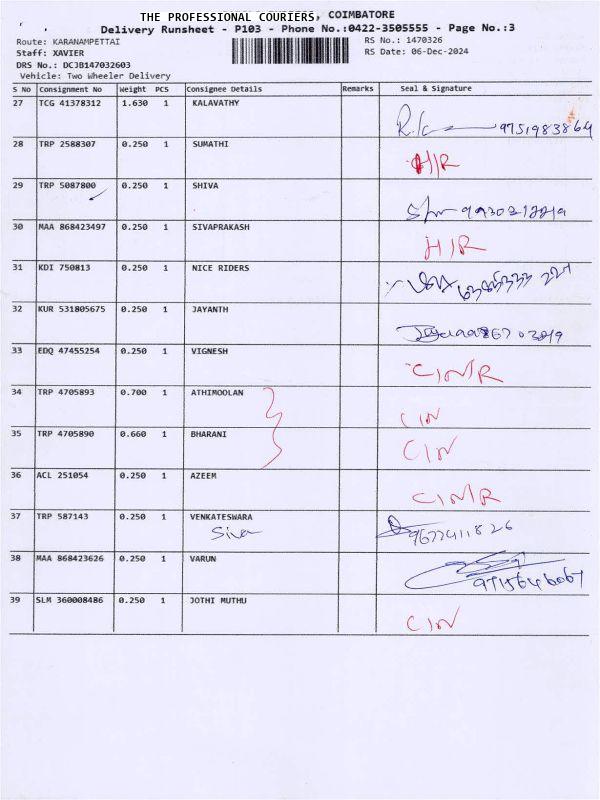 THE PROFESSIONAL COURIERS, COIMBATORE
Delivery Runsheet - P103 - Phone No.:0422-3505555 - Page No.:3
Route: KARANAMPETTAI RS No.: 1470326
Staff: XAVIER RS Date: 06-Dec-2024
DRS No.: DCJB147032603
Vehicle: Two Wheeler Delivery
S No Consignment No Weight PCS Consignee Details Remarks Seal & Signature
27 TCG 41378312 1.630 1 KALAVATHY
9751983864
28 TRP 2588307 0.250 1 SUMATHI
H/R
29 TRP 5087800 0.250 1 SHIVA
30 MAA 868423497 0.250 1 SIVAPRAKASH
H/R
31 KDI 750813 0.250 1 NICE RIDERS
32 KUR 531805675 0.250 1 JAYANTH
33 EDQ 47455254 0.250 1 VIGNESH
CIN/R
34 TRP 4705893 0.700 1 ATHIMOOLAN
CIN
35 TRP 4705890 0.660 1 BHARANI
CIN
36 ACL 251054 0.250 1 AZEEM
CIN/R
37 TRP 587143 0.250 1 VENKATESWARA
Siva 9677411826
38 MAA 868423626 0.250 1 VARUN
9715646067
39 SLM 360008486 0.250 1 JOTHI MUTHU
CIN